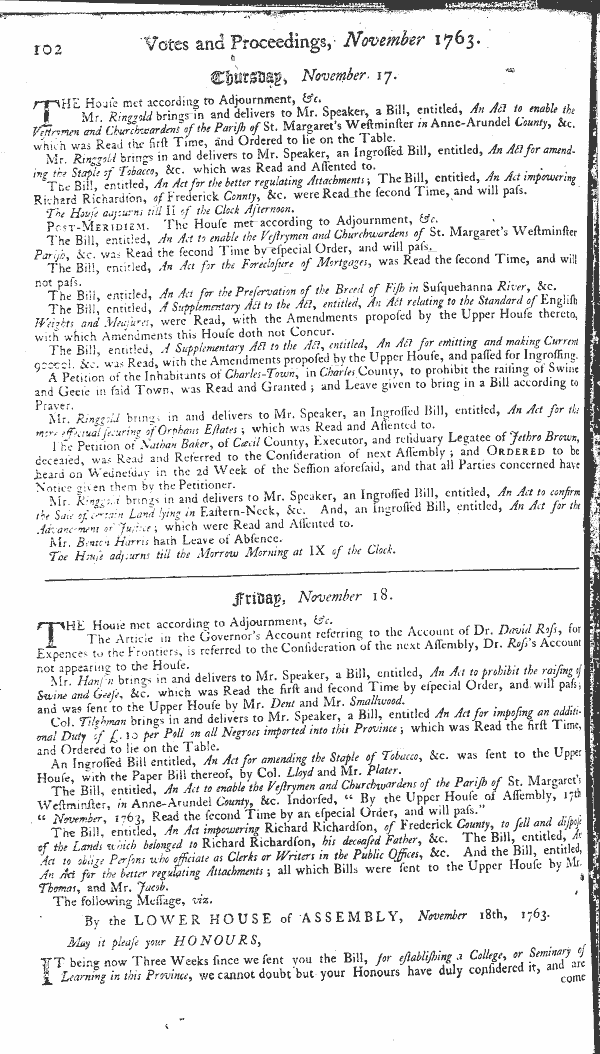 102 Votes and Proceedings, November 1763.
Thursday, November 17.
THE House met according to Adjournment, &c.
Mr. Ringgold brings in and delivers to Mr. Speaker, a Bill, entitled, An Act to enable the
Vestrymen and Churchwardens of the Parish of St. Margaret's Westminster in Anne-Arundel County, &c.
which was Read the first Time, and Ordered to lie on the Table.
Mr. Ringgold brings in and delivers to Mr. Speaker, an Ingrossed Bill, entitled, An Act for amend-
ing the Staple of Tobacco, &c. which was Read and Assented to.
The Bill, entitled, An Act for the better regulating Attachments; The Bill, entitled, An Act impowering
Richard Richardson, of Frederick County, &c. were Read the second Time, and will pass.
The House adjourns till II of the Clock Afternoon.
Post-Meridiem. The House met according to Adjournment, &c.
The Bill, entitled, An Act to enable the Vestrymen and Churchwardens of St. Margaret's Westminster
Parish, &c. was Read the second Time by especial Order, and will pass.
The Bill, entitled, An Act for the Foreclosure of Mortgages, was Read the second Time, and will
not pass.
The Bill, entitled, An Act for the Preservation of the Breed of Fish in Susquehanna River, &c.
The Bill, entitled, A Supplementary Act to the Act, entitled, An Act relating to the Standard of English
Weights and Measures, were Read, with the Amendments proposed by the Upper House thereto,
with which Amendments this House doth not Concur.
The Bill, entitled, A Supplementary Act to the Act, entitled, An Act for emitting and making Current
90000l. &c. was Read, with the Amendments proposed by the Upper House, and passed for Ingrossing.
A Petition of the Inhabitants of Charles-Town, in Charles County, to prohibit the raising of Swine
and Geese in said Town, was Read and Granted; and Leave given to bring in a Bill according to
Prayer.
Mr. Ringgold brings in and delivers to Mr. Speaker, an Ingrossed Bill, entitled, An Act for the
more effectual securing of Orphans Estates; which was Read and Assented to.
The Petition of Nathan Baker, of Cæcil County, Executor, and residuary Legatee of Jethro Brown,
deceased, was Read and Referred to the Consideration of next Assembly; and ORDERED to be
heard on Wednesday in the 2d Week of the Session aforesaid, and that all Parties concerned have
Notice given them by the Petitioner.
Mr. Ringgold brings in and delivers to Mr. Speaker, an Ingrossed Bill, entitled, An Act to confirm
the Sale of certain Land lying in Eastern-Neck, &c. And, an Ingrossed Bill, entitled, An Act for the
Advancement of Justice; which were Read and Assented to.
Mr. Benton Harris hath Leave of Absence.
The House adjourns till the Morrow Morning at IX of the Clock.
Friday, November 18.
THE House met according to Adjournment, &c.
The Article in the Governor's Account referring to the Account of Dr. David Ross, for
Expences to the Frontiers, is referred to the Consideration of the next Assembly, Dr. Ross's Account
not appearing to the House.
Mr. Hanson brings in and delivers to Mr. Speaker, a Bill, entitled, An Act to prohibit the raising of
Swine and Geese, &c. which was Read the first and second Time by especial Order, and will pass;
and was sent to the Upper House by Mr. Dent and Mr. Smallwood.
Col. Tilghman brings in and delivers to Mr. Speaker, a Bill, entitled An Act for imposing an additi-
onal Duty of £. 10 per Poll on all Negroes imported into this Province; which was Read the first Time,
and Ordered to lie on the Table.
An Ingrossed Bill entitled, An Act for amending the Staple of Tobacco, &c. was sent to the Upper
House, with the Paper Bill thereof, by Col. Lloyd and Mr. Plater.
The Bill, entitled, An Act to enable the Vestrymen and Churchwardens of the Parish of St. Margaret's
Westminster, in Anne-Arundel County, &c. Indorsed, " By the Upper House of Assembly, 17th
" November, 1763, Read the second Time by an especial Order, and will pass."
The Bill, entitled, An Act impowering Richard Richardson, of Frederick County, to sell and dispose
of the Lands which belonged to Richard Richardson, his deceased Father, &c. The Bill, entitled, An
Act to oblige Persons who officiate as Clerks or Writers in the Public Offices, &c. And the Bill, entitled,
An Act for the better regulating Attachments; all which Bills were sent to the Upper House by Mr.
Thomas, and Mr. Jacob.
The following Message, viz.
By the LOWER HOUSE of ASSEMBLY, November 18th, 1763.
May it please your HONOURS,
IT being now Three Weeks since we sent you the Bill, for establishing a College, or Seminary of
Learning in this Province, we cannot doubt but your Honours have duly considered it, and are
come